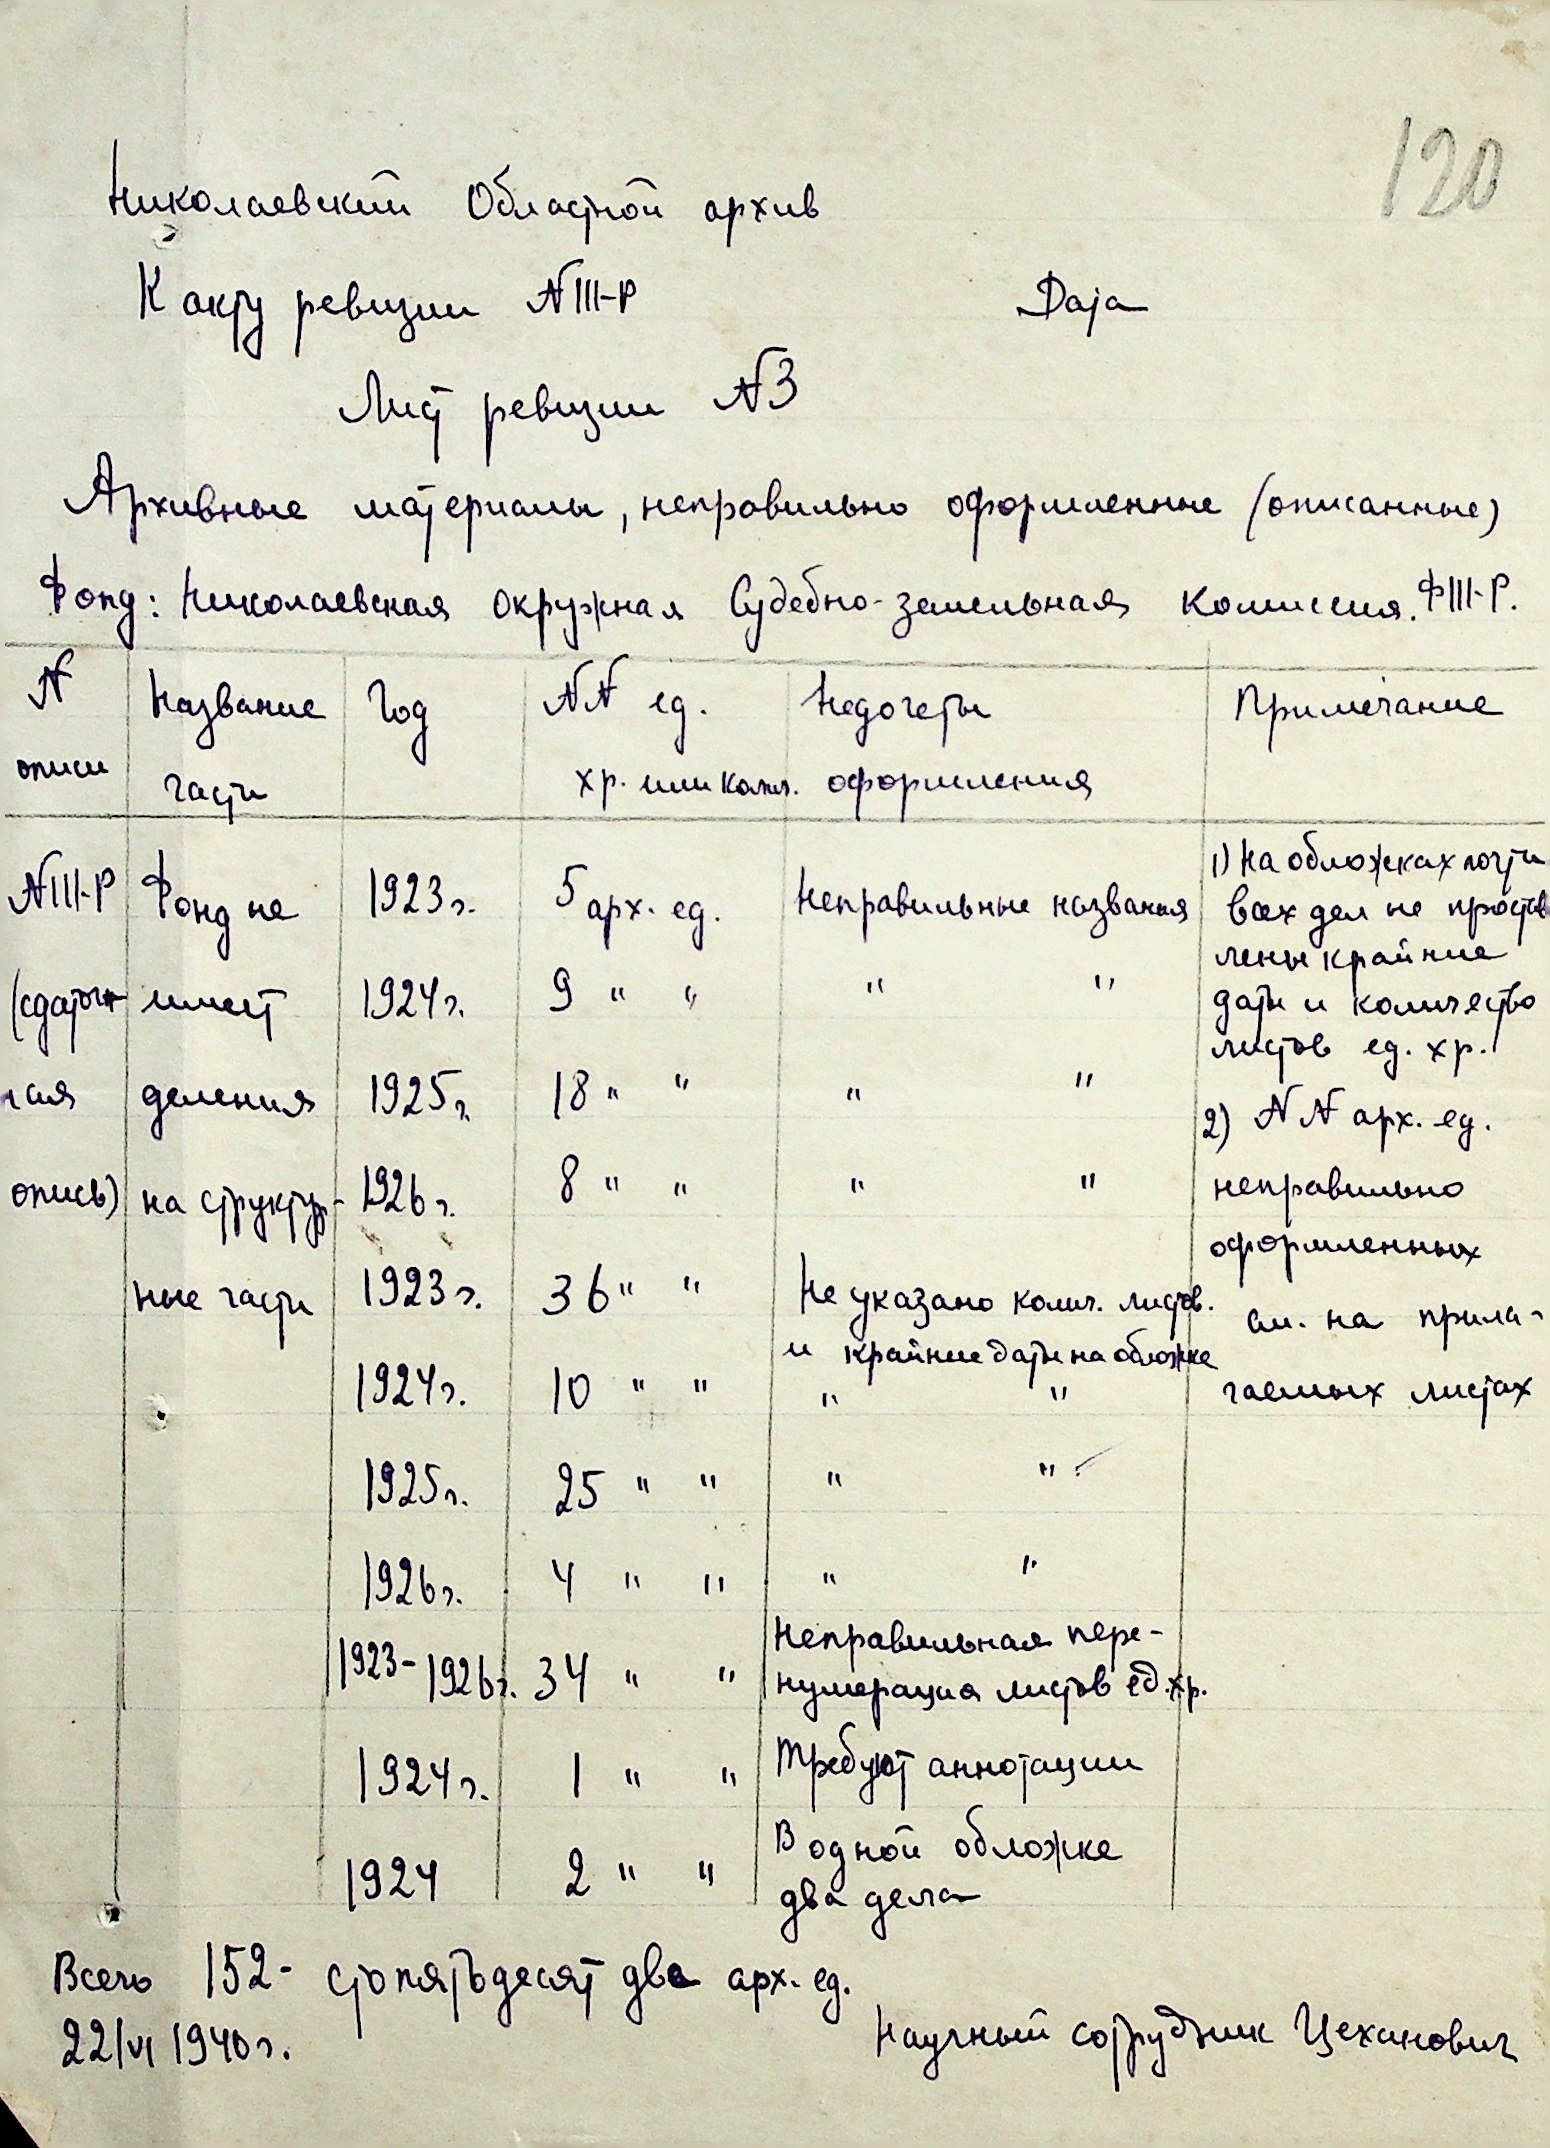 120
Николаевский Областной архив
К акту ревизии № III-Р Дата
Лист ревизии № 3
Архивные материалы, неправильно оформленные (описанные)
Фонд: Николаевская окружная Судебно-земельная комиссия. Ф III-Р.
№ описи | Название части | Год | №№ ед. хр. или колич. | Недочеты оформления | Примечание
№ III-Р | Фонд не | 1923 г. | 5 арх. ед. | Неправильные названия | 1) На обложках почти
всех дел не простав
лены крайние
(сдаточ- | имеет | 1924 г. | 9 " " | " " | даты и количество
листов ед. хр.
ная | деления | 1925 г. | 18 " " | " " | 2) №№ арх. ед.
опись) | на структур- | 1926 г. | 8 " " | " " | неправильно
оформленных
ные части | 1923 г. | 36 " " | Не указано колич. листов. | см. на прила-
и крайние даты на обложке
1924 г. | 10 " " | " " | гаемых листах
1925 г. | 25 " " | " "
1926 г. | 4 " " | " "
1923-1926 г. | 34 " " | Неправильная пере-
нумерация листов ед. хр.
1924 г. | 1 " " | Требуют аннотации
1924 | 2 " " | В одной обложке
два дела
Всего 152 - стопятьдесят два арх. ед.
22/VI 1940 г. Научный сотрудник Цеханович